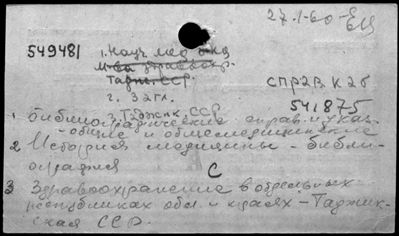 27.I-60-ЕЦ
549481
1. Науч. мед. б-ка
М-ва здравоохр.
Тадж. ССР.
2. Загл.
3. Таджик. ССР
СПР2В К2б
541875
1 Библиографические справ. и указ.
- общие и общемедицинские
2 История медицины - библи-
ография
С
3 Здравоохранение в отдельных
республиках обл. и краях - Таджик-
ская ССР.